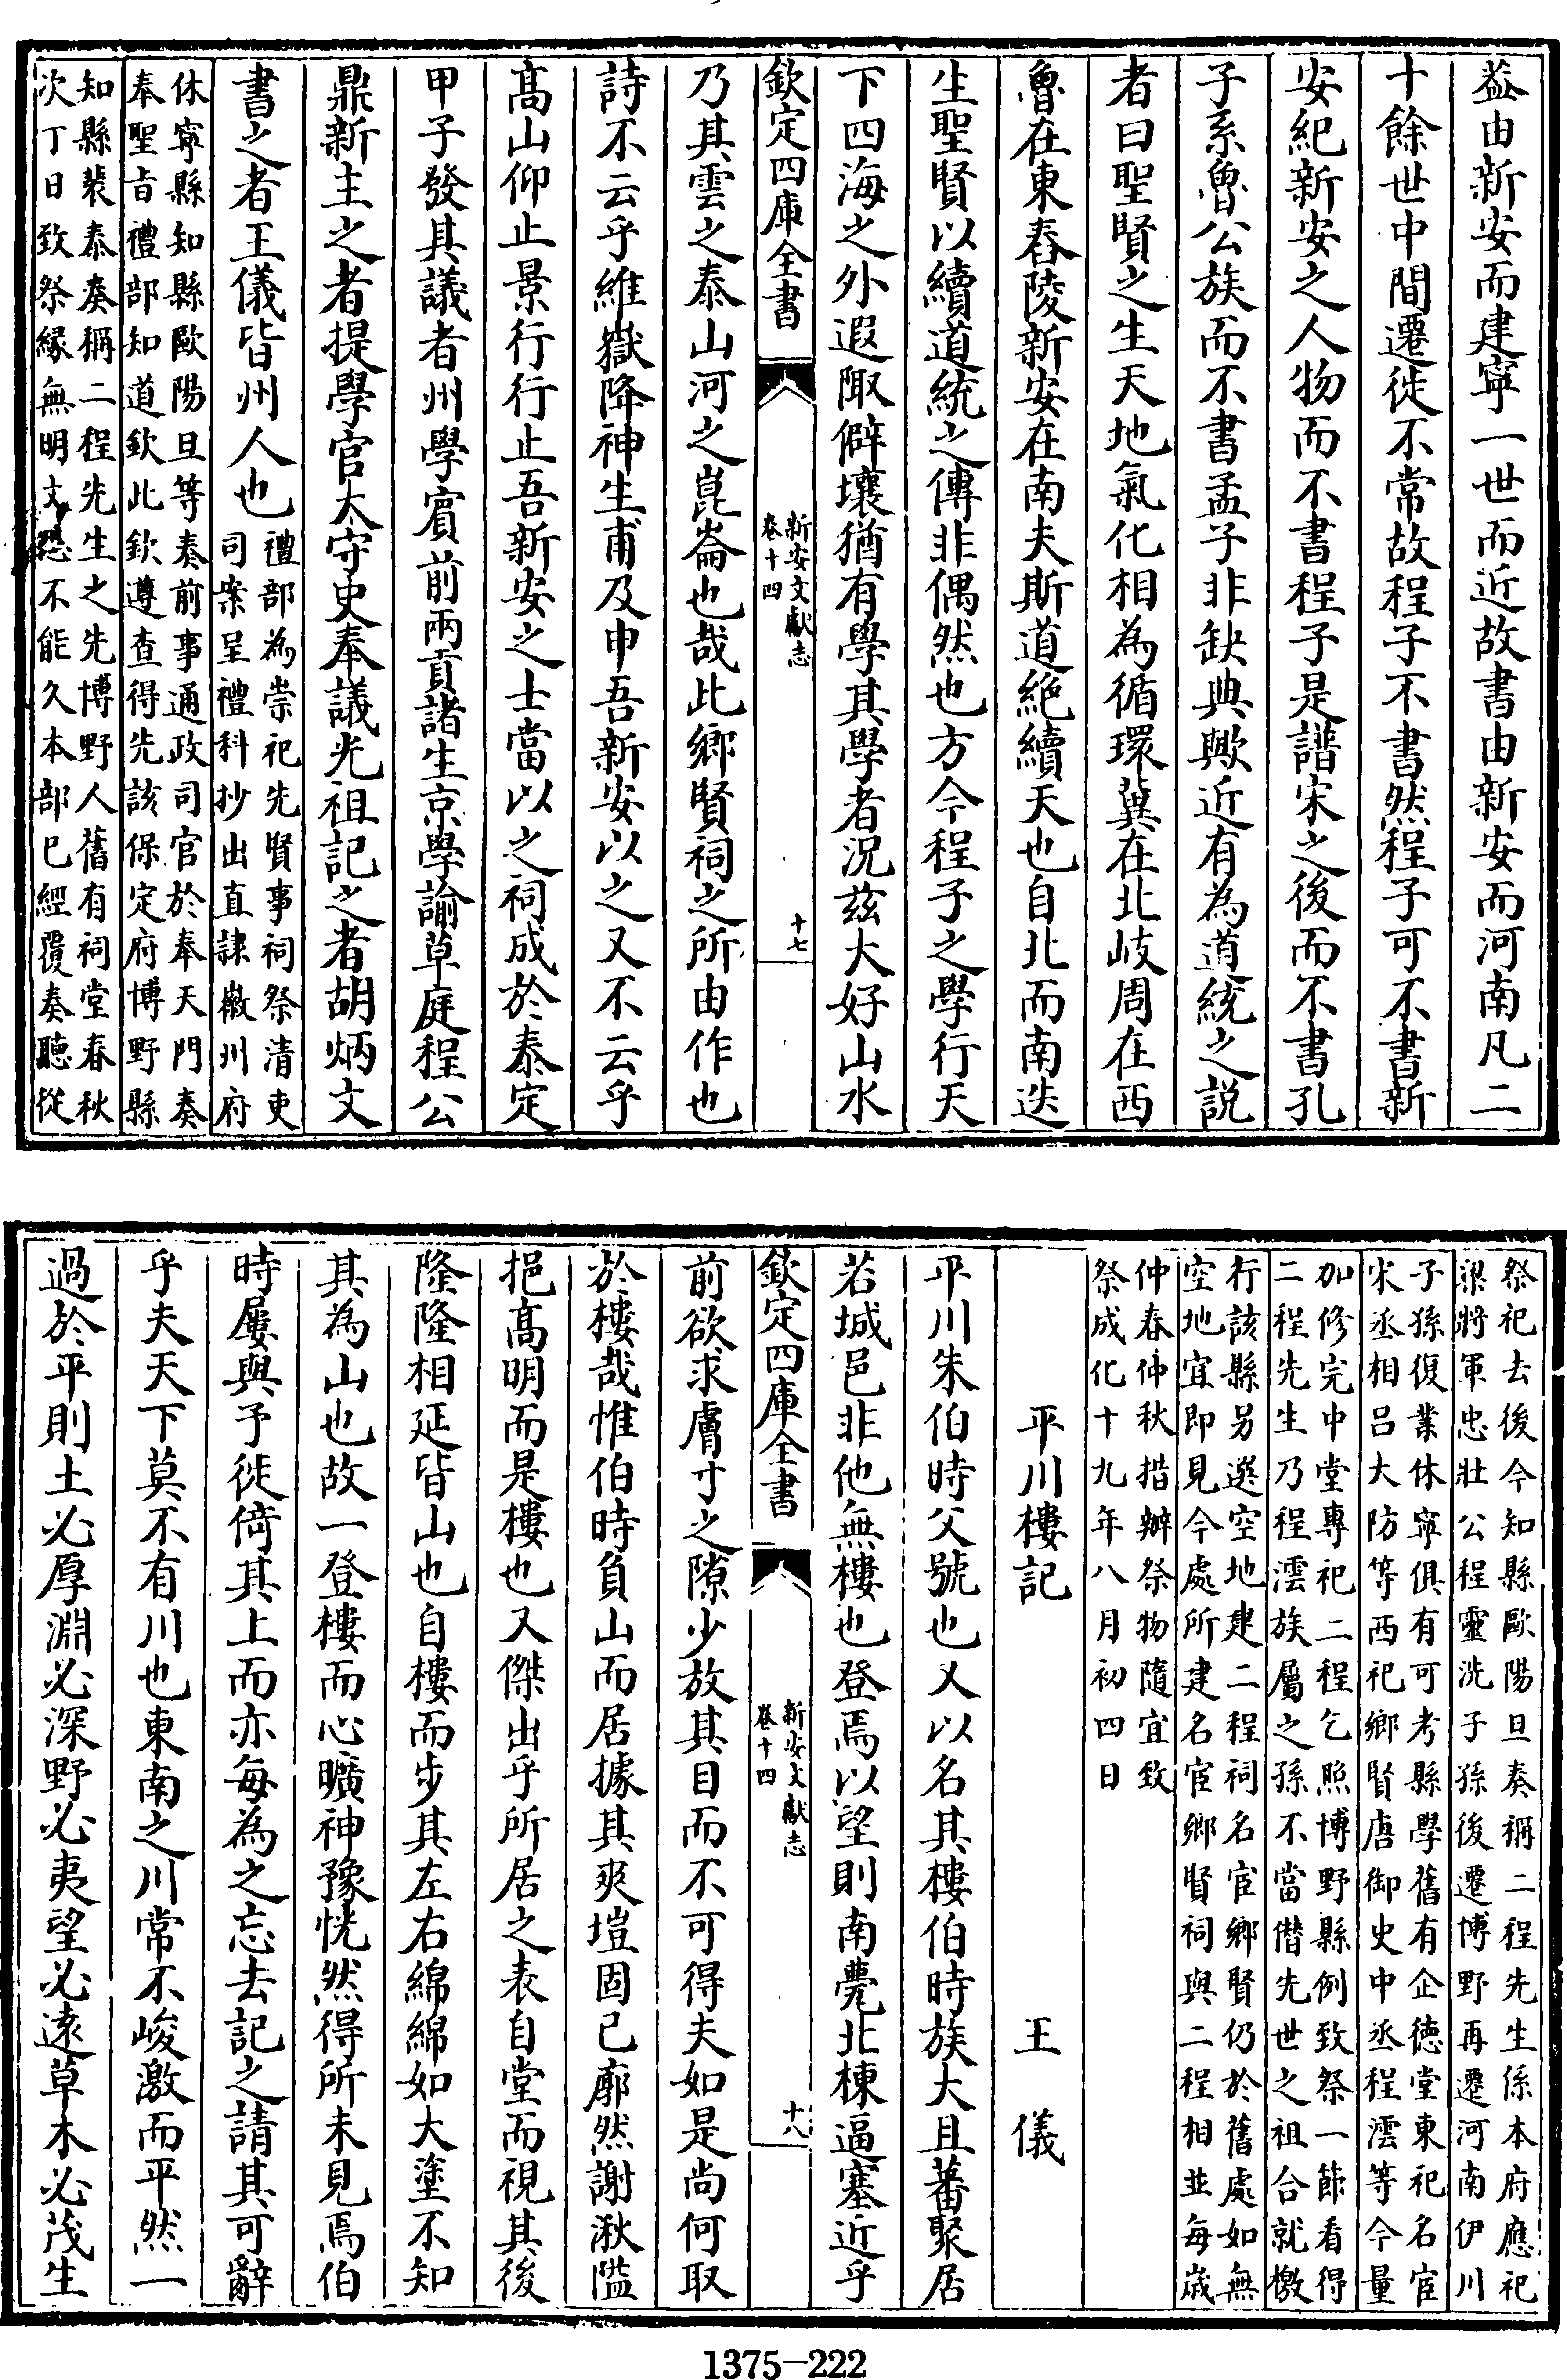 葢由新安而建寧一世而近故書由新安而河南凡二
十餘世中間遷徙不常故程子不書然程子可不書新
安紀新安之人物而不書程子是譜宋之後而不書孔
子系魯公族而不書孟子非缺典歟近有為道統之説
者曰聖賢之生天地氣化相為循環冀在北岐周在西
魯在東舂陵新安在南夫斯道絶續天也自北而南迭
生聖賢以續道統之傳非偶然也方今程子之學行天
下四海之外遐陬僻壤猶有學其學者況兹大好山水
欽定四庫全書
新安文獻志
卷十四
十七
乃其雲之泰山河之崑崙也哉此鄉賢祠之所由作也
詩不云乎維嶽降神生甫及申吾新安以之又不云乎
髙山仰止景行行止吾新安之士當以之祠成於泰定
甲子發其議者州學賔前兩貢諸生京學諭草庭程公
鼎新主之者提學官太守史奉議光祖記之者胡炳文
書之者王儀皆州人也
禮部為崇祀先賢事祠祭清吏
司案呈禮科抄出直隷徽州府
休寧縣知縣歐陽旦等奏前事通政司官於奉天門奏
奉聖旨禮部知道欽此欽遵查得先該保定府博野縣
知縣裴泰奏稱二程先生之先博野人舊有祠堂春秋
次丁日致祭縁無明文恐不能久本部已經覆奏聽從
祭祀去後今知縣歐陽旦奏稱二程先生係本府應祀
梁將軍忠壯公程靈洗子孫後遷博野再遷河南伊川
子孫復業休寧俱有可考縣學舊有企徳堂東祀名宦
宋丞相吕大防等西祀鄉賢唐御史中丞程澐等今量
加修完中堂專祀二程乞照博野縣例致祭一節看得
二程先生乃程澐族屬之孫不當僭先世之祖合就檄
行該縣另選空地建二程祠名宦鄉賢仍於舊處如無
空地宜即見今處所建名宦鄉賢祠與二程相並每嵗
仲春仲秋措辦祭物隨宜致
祭成化十九年八月初四日
平川樓記　王儀
平川朱伯時父號也又以名其樓伯時族大且蕃聚居
若城邑非他無樓也登焉以望則南甍北棟逼塞近乎
欽定四庫全書
新安文獻志
卷十四
十八
前欲求膚寸之隙少放其目而不可得夫如是尚何取
於樓哉惟伯時負山而居據其爽塏固已廓然謝湫隘
挹髙明而是樓也又傑出乎所居之表自堂而視其後
隆隆相延皆山也自樓而步其左右綿綿如大塗不知
其為山也故一登樓而心曠神豫恍然得所未見焉伯
時屢與予徙倚其上而亦每為之忘去記之請其可辭
乎夫天下莫不有川也東南之川常不峻激而平然一
過於平則土必厚淵必深野必夷望必逺草木必茂生
1375—222